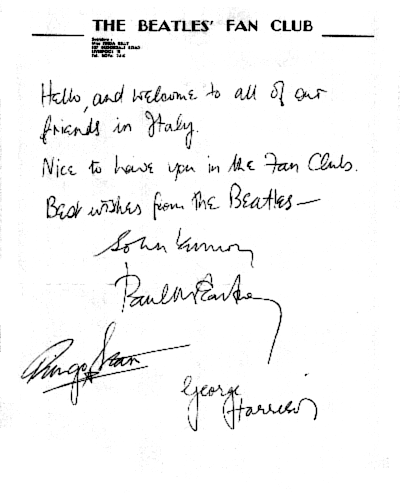 THE BEATLES' FAN CLUB
Hello, and welcome to all of our
friends in Italy.
Nice to have you in the Fan Club.
Best wishes from the Beatles —
John Lennon
Paul McCartney
Ringo Starr
George
Harrison